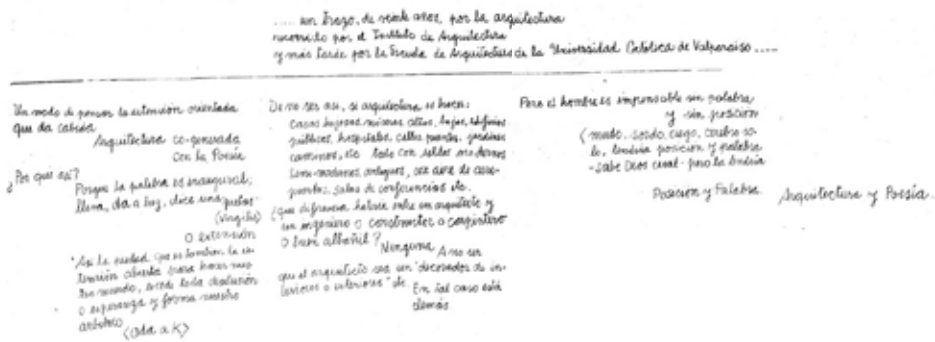 ..... un trozo, de veinte años, por la arquitectura
recorrido por el Instituto de Arquitectura
y más tarde por la Escuela de Arquitectura de la Universidad Católica de Valparaíso .....
Un modo de pensar la extensión orientada
que da cabida
Arquitectura co-generada
con la Poesía
¿Por qué así?
Porque la palabra es inaugural;
lleva, da a luz, dice una
(Virgilio)
o extensión
"Así la
tensión abierta para hacer
mundo, toda desilusión
o esperanza y forma nuestro
arbitrio
(Oda a K)
De no ser así, si arquitectura es hacer:
Casas altas, bajas, edificios
públicos, hospitales, calles, puentes, jardines
caminos, etc todo con modernos
semi-modernos, antiguos, sea
salas de conferencias etc.
¿Que diferencia habría entre un arquitecto y
un ingeniero o constructor o carpintero
o buen albañil?
Ninguna A no ser
que el arquitecto sea un "decorador de in-
teriores o exteriores" etc. En tal caso está
demás
Pero el hombre es impensable sin palabra
y sin posición
(mudo, sordo, ciego, cerebro so-
lo, tendría posición y palabra
- sabe Dios cual - pero la tendría
Posición y Palabra
Arquitectura y Poesía.